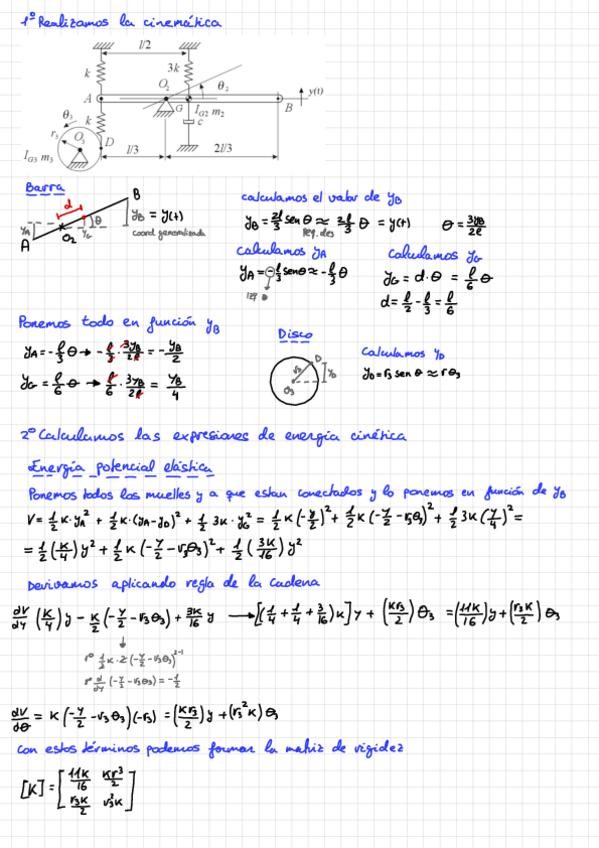 1º Realizamos la cinemática
l/2
k
3k
O₂
θ₂
A
G
I_G2 m₂
B
y(t)
θ₃
k
c
r₃
O₃
D
I_G3 m₃
l/3
2l/3
Barra
d
B
θ
y_A
A
O₂
y_G
y_B = y(t)
coord generalizada
calculamos el valor de y_B
y_B = 2l/3 senθ ≈ 2l/3 θ = y(t) θ = 3y_B/2l
calculamos y_A
y_A = -l/3 senθ ≈ -l/3 θ
Calculamos y_G
y_G = d·θ = l/6 θ
d = l/2 - l/3 = l/6
Ponemos todo en función y_B
y_A = -l/3 θ → -l/3 · 3y_B/2l = -y_B/2
y_G = l/6 θ → l/6 · 3y_B/2l = y_B/4
Disco
D
r₃
y_D
O₃
Calculamos y_D
y_D = r₃ sen θ ≈ rθ₃
2º Calculamos las expresiones de energía cinética
Energía potencial elástica
Ponemos todos los muelles y a que estan conectados y lo ponemos en función de y_B
V = 1/2 k·y_A² + 1/2 k·(y_A-y_D)² + 1/2 3k·y_G² = 1/2 k(-y/2)² + 1/2 k(-y/2 - r₃θ₃)² + 1/2 3k(y/4)² =
= 1/2 (k/4) y² + 1/2 k(-y/2 - r₃θ₃)² + 1/2 (3k/16) y²
Derivamos aplicando regla de la cadena
dV/dy (k/4) y - k/2 (-y/2 - r₃θ₃) + 3k/16 y → [(1/4 + 1/4 + 3/16)k] y + (kr₃/2) θ₃ = (11k/16) y + (r₃k/2) θ₃
1º 1/2 k·2 (-y/2 - r₃θ₃)²⁻¹
2º d/dy (-y/2 - r₃θ₃) = -1/2
dV/dθ = k(-y/2 - r₃θ₃)(-r₃) = (kr₃/2) y + (r₃²k) θ₃
Con estos términos podemos formar la matriz de rigidez
[K] = [11k/16 kr³/2
r₃k/2 r₃²k]